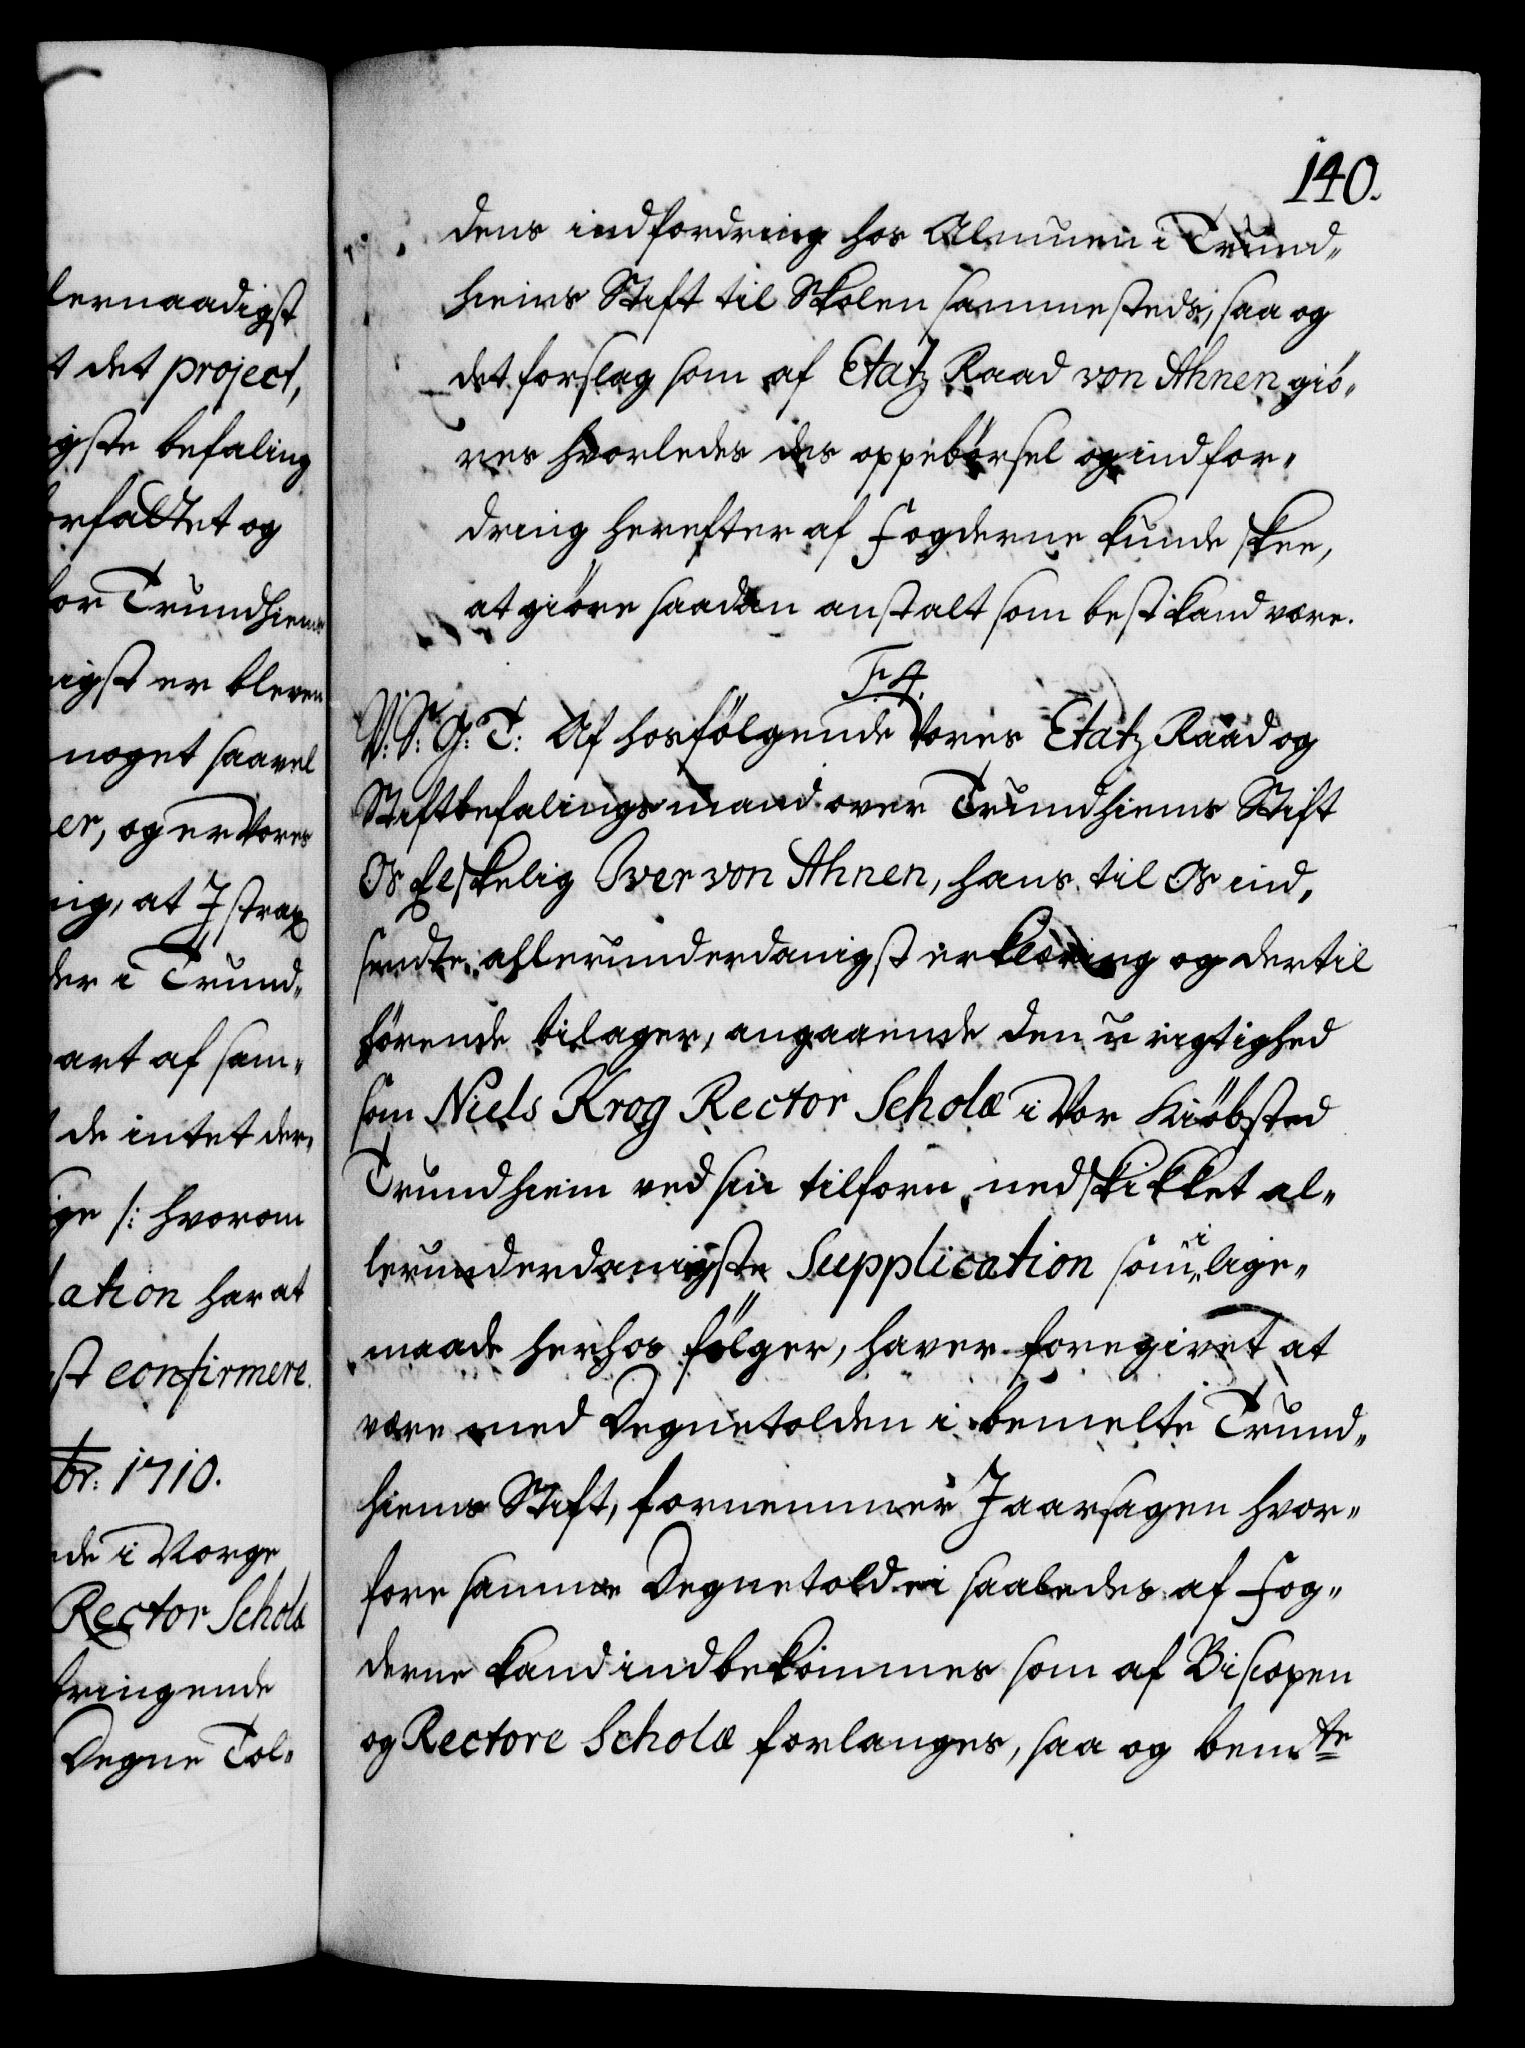 lernaadigst
t det project,
igste befaling
rfattet og
for Trundhiems
igst er bleven
noget saavel
er, og er Vores
ig, at I strax
der i Trund-
art af sam-
de intet der-
ige /: hvorom
lation har at
st confirmere.
br: 1710.
de i Norge
Rector Schola
bringende
Degne Tol-
140.
dens indfordring hos Almuen i Trund-
hiems Stift til Skolen sammesteds, saa og
det forslag som af Etatz Raad von Ahnen giö-
res hvorledes des oppebørsel og indfor-
dring herefter af Fogderne kunde skee,
at giöre saadan anstalt som best kand være.
F. 4.
V: S: G: T: Af hosfölgende Vores Etatz Raad og
Stiftbefalingsmand over Trundhiems Stift
Os Elskelig Iver von Ahnen, hans til Os ind-
sendte allerunderdanigst erklæring og dertil
hörende bilager, angaaende den urigtighed
som Niels Krog Rector Scholæ i Vor Kiöbsted
Trundhiem ved sin tilforn nedskikket al-
lerunderdanigste Supplication som i lige-
maade herhos fölger, haver foregivet at
være med Degnetolden i bemelte Trund-
hiems Stift, fornemmer I aarsagen hvor-
fore samme Degnetold ei saaledes af Fog-
derne kand indbekommes som af Biscopen
og Rectore Scholæ forlanges, saa og bemte